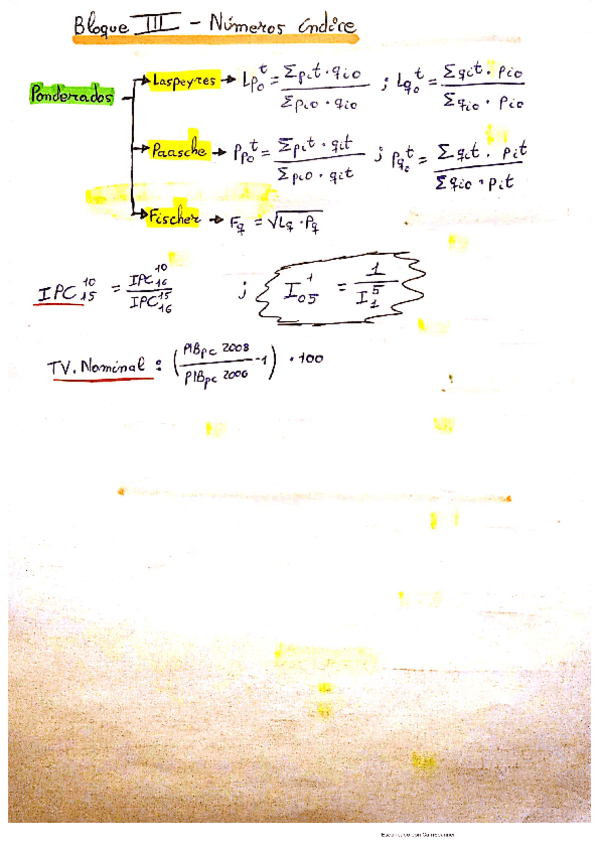 Bloque III - Números índice
Ponderados
Laspeyres → Lp₀ᵗ = Σpit · qio / Σpio · qio ; Lq₀ᵗ = Σqit · pio / Σqio · pio
Paasche → Pp₀ᵗ = Σpit · qit / Σpio · qit ; Pq₀ᵗ = Σqit · pit / Σqio · pit
Fischer → Fq = √Lq · Pq
IPC₁₅¹⁰ = IPC₁₆¹⁰ / IPC₁₆¹⁵ ; I₀₅¹ = 1 / I₁⁵
TV. Nominal : (PIBpc 2008 / PIBpc 2006 - 1) · 100